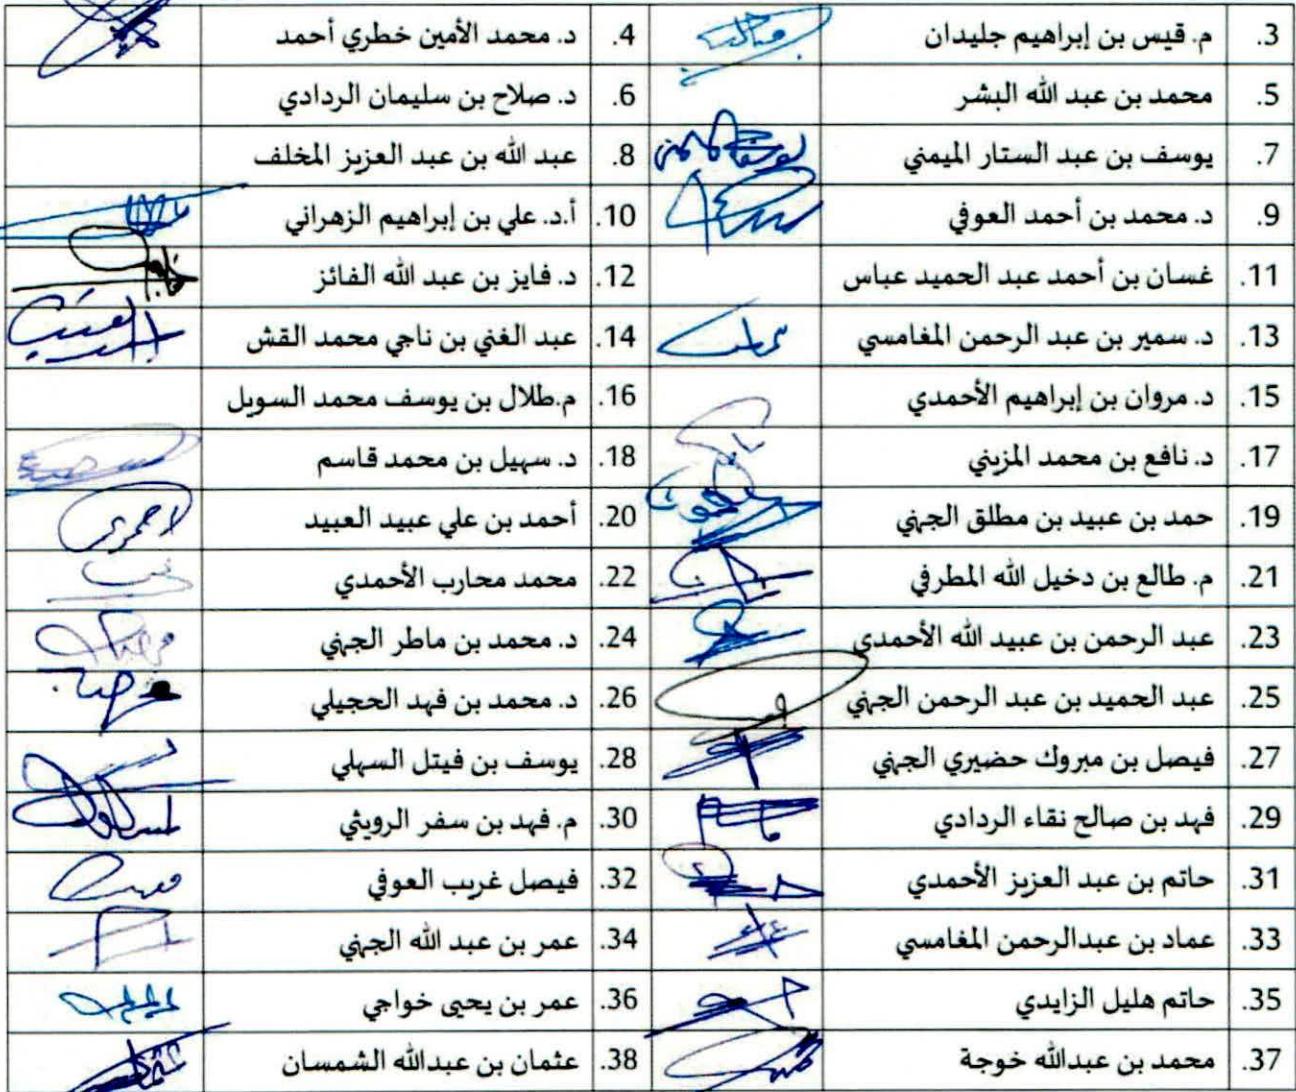 3. م. قيس بن إبراهيم جليدان 4. د. محمد الأمين خطري أحمد
5. محمد بن عبد الله البشر 6. د. صلاح بن سليمان الردادي
7. يوسف بن عبد الستار الميمني 8. عبد الله بن عبد العزيز المخلف
9. د. محمد بن أحمد العوفي 10. أ.د. علي بن إبراهيم الزهراني
11. غسان بن أحمد عبد الحميد عباس 12. د. فايز بن عبد الله الفائز
13. د. سمير بن عبد الرحمن المغامسي 14. عبد الغني بن ناجي محمد القش
15. د. مروان بن إبراهيم الأحمدي 16. م.طلال بن يوسف محمد السويل
17. د. نافع بن محمد المزيني 18. د. سهيل بن محمد قاسم
19. حمد بن عبيد بن مطلق الجهني 20. أحمد بن علي عبيد العبيد
21. م. طالع بن دخيل الله المطرفي 22. محمد محارب الأحمدي
23. عبد الرحمن بن عبيد الله الأحمدي 24. د. محمد بن ماطر الجهني
25. عبد الحميد بن عبد الرحمن الجهني 26. د. محمد بن فهد الحجيلي
27. فيصل بن مبروك حضيري الجهني 28. يوسف بن فيتل السهلي
29. فهد بن صالح نقاء الردادي 30. م. فهد بن سفر الرويثي
31. حاتم بن عبد العزيز الأحمدي 32. فيصل غريب العوفي
33. عماد بن عبدالرحمن المغامسي 34. عمر بن عبد الله الجهني
35. حاتم هليل الزايدي 36. عمر بن يحيى خواجي
37. محمد بن عبدالله خوجة 38. عثمان بن عبدالله الشمسان